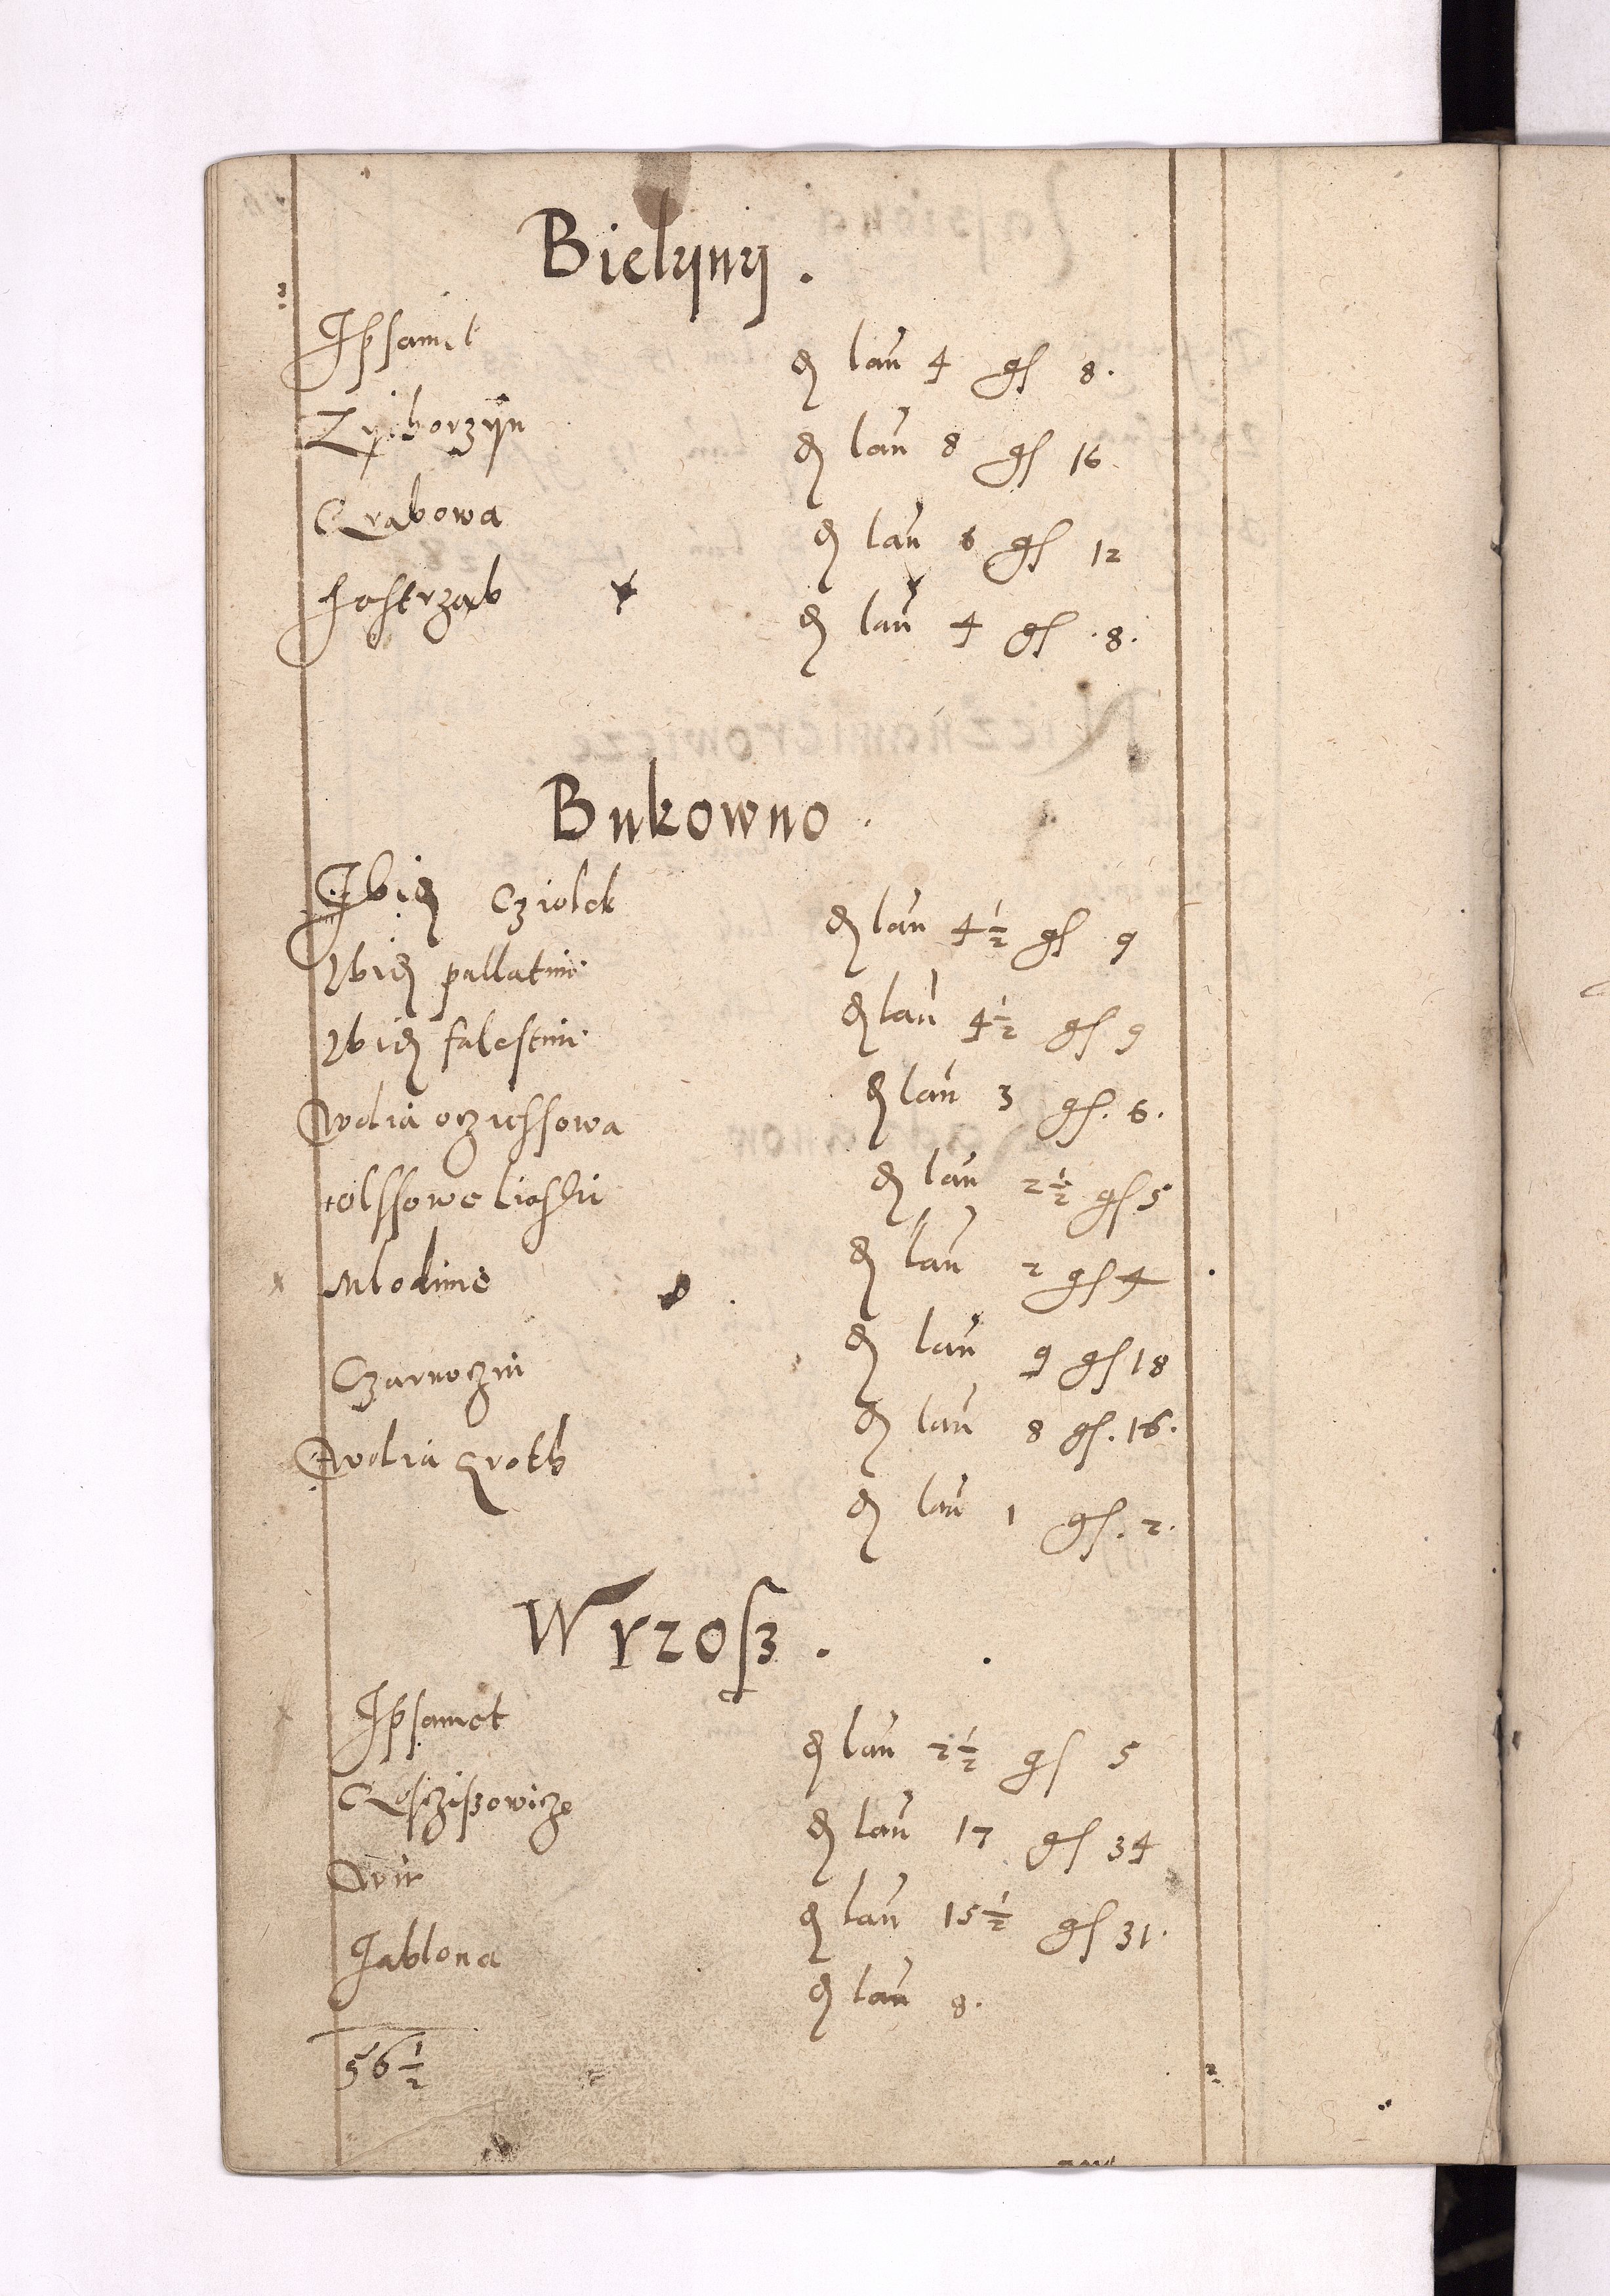 Bielyny.
Ipsamet de lan 4 gs 8.
Zyborzyn de lan 8 gs 16
Grabowa de lan 6 gs 12
Jastrząb de lan 4 gs .8.
Bukowno.
Ibidem Cziolek de lan 4½ gs 9
Ibidem pallatini de lan 4½ gs 9
Ibidem falestini de lan 3 gs. 6.
Wolia ocziessowa de lan 2½ gs 5
olssowe de lan 2 gs 4
Mlodinie de lan 9 gs 18
Czarnoczin de lan 8 gs. 16.
Wolia Groth de lan 1 gs. 2.
Wrzosz.
Ipsamet de lan 2½ gs 5
Goscziszowicze de lan 17 gs 34
Wir de lan 15½ gs 31.
Jablona de lan 8.
56½